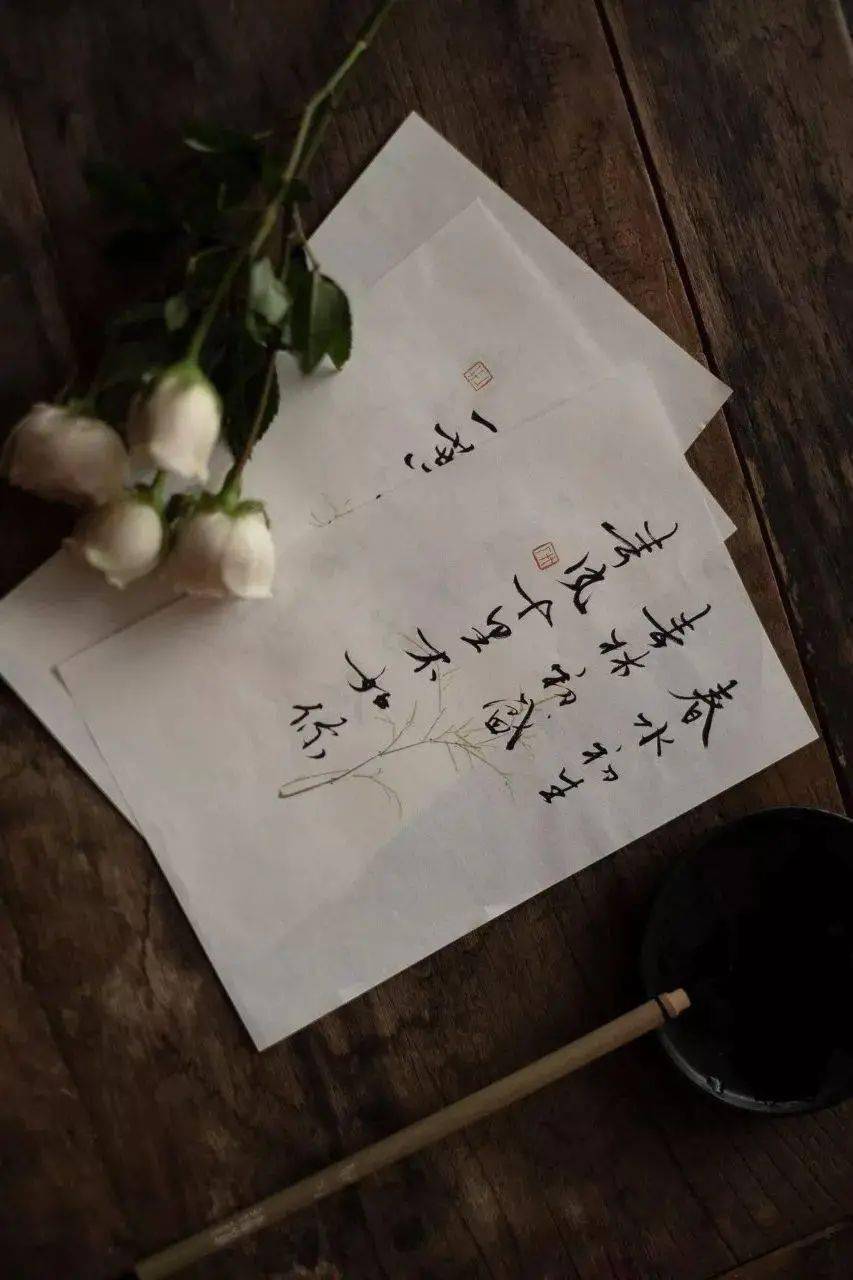 春水初生
春林初盛
春风十里不如你